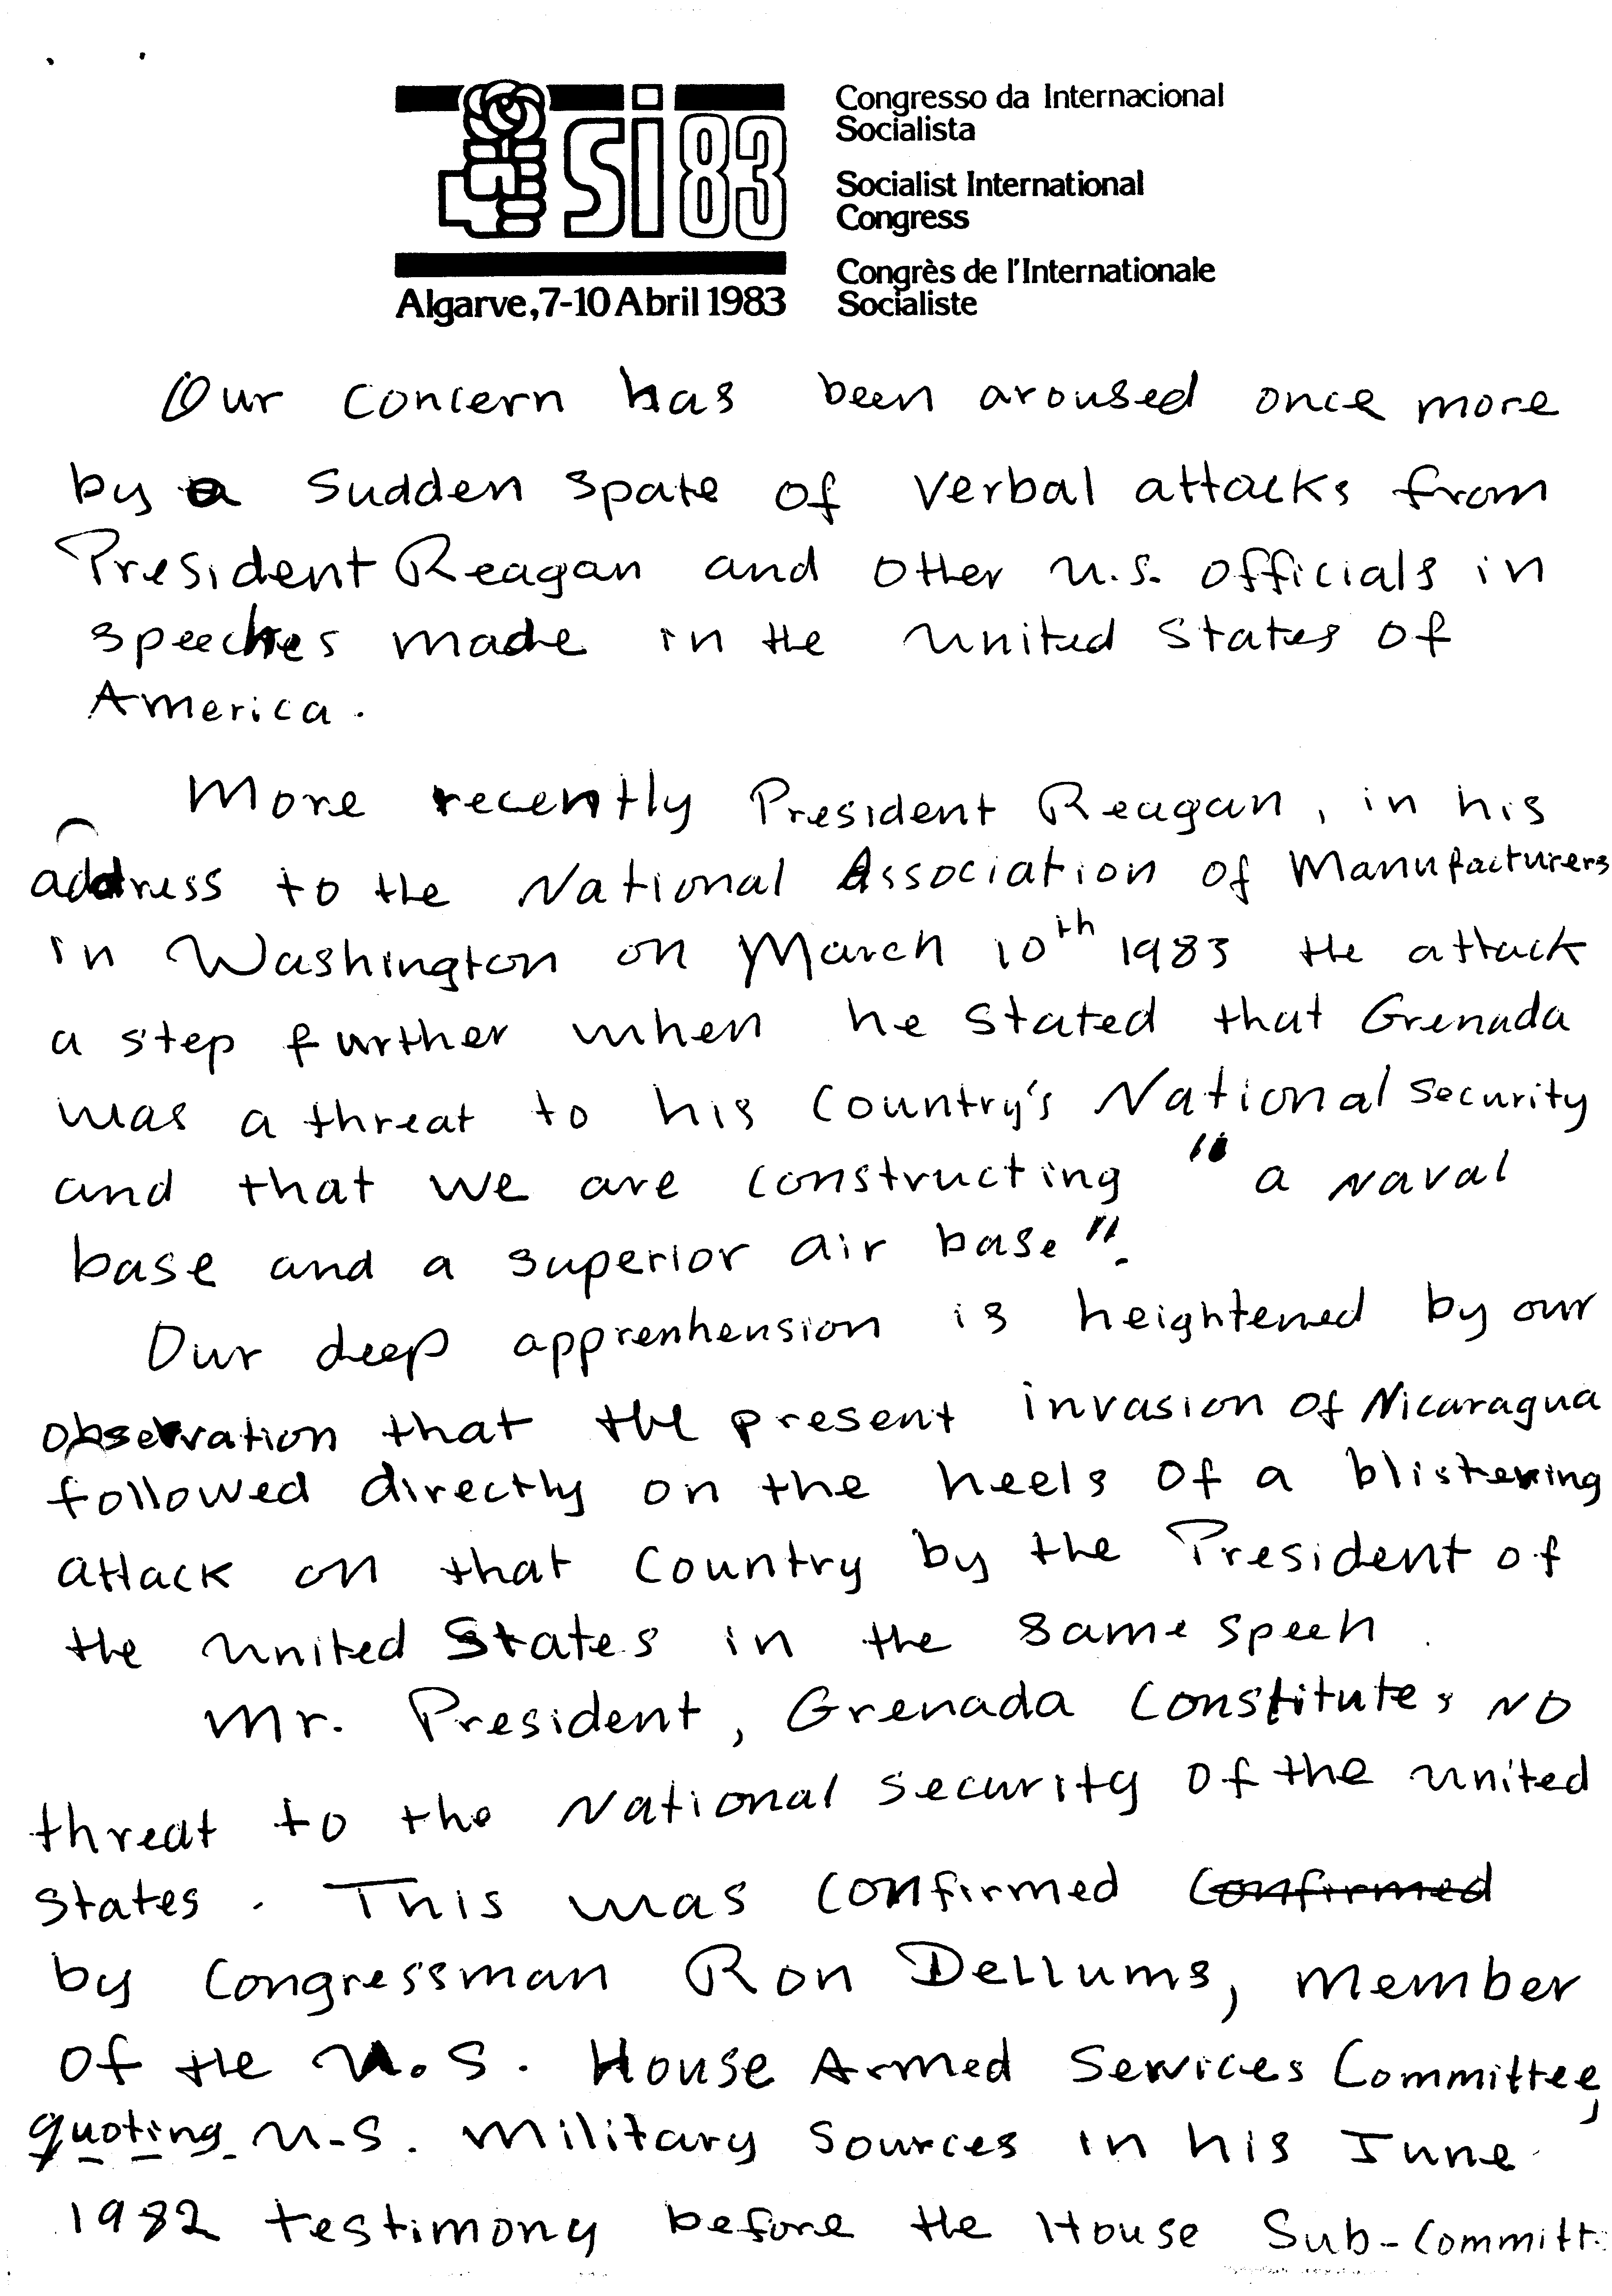 si 83
Algarve, 7-10 Abril 1983
Congresso da Internacional
Socialista
Socialist International
Congress
Congrès de l'Internationale
Socialiste
Our concern has been aroused once more
by a sudden spate of verbal attacks from
President Reagan and other U.S. officials in
speeches made in the United States of
America.
More recently President Reagan, in his
address to the National Association of Manufacturers
in Washington on March 10th 1983 the attack
a step further when he stated that Grenada
was a threat to his Country's National Security
and that we are constructing "a naval
base and a superior air base".
Our deep apprenhension is heightened by our
observation that the present invasion of Nicaragua
followed directly on the heels of a blistering
attack on that Country by the President of
the United States in the same speeh.
Mr. President, Grenada Constitutes NO
threat to the National Security of the United
States. This was confirmed confirmed
by Congressman Ron Dellums, member
of the U.S. House Armed Services Committee,
quoting U.S. Military Sources in his June
1982 testimony before the House Sub-Committ